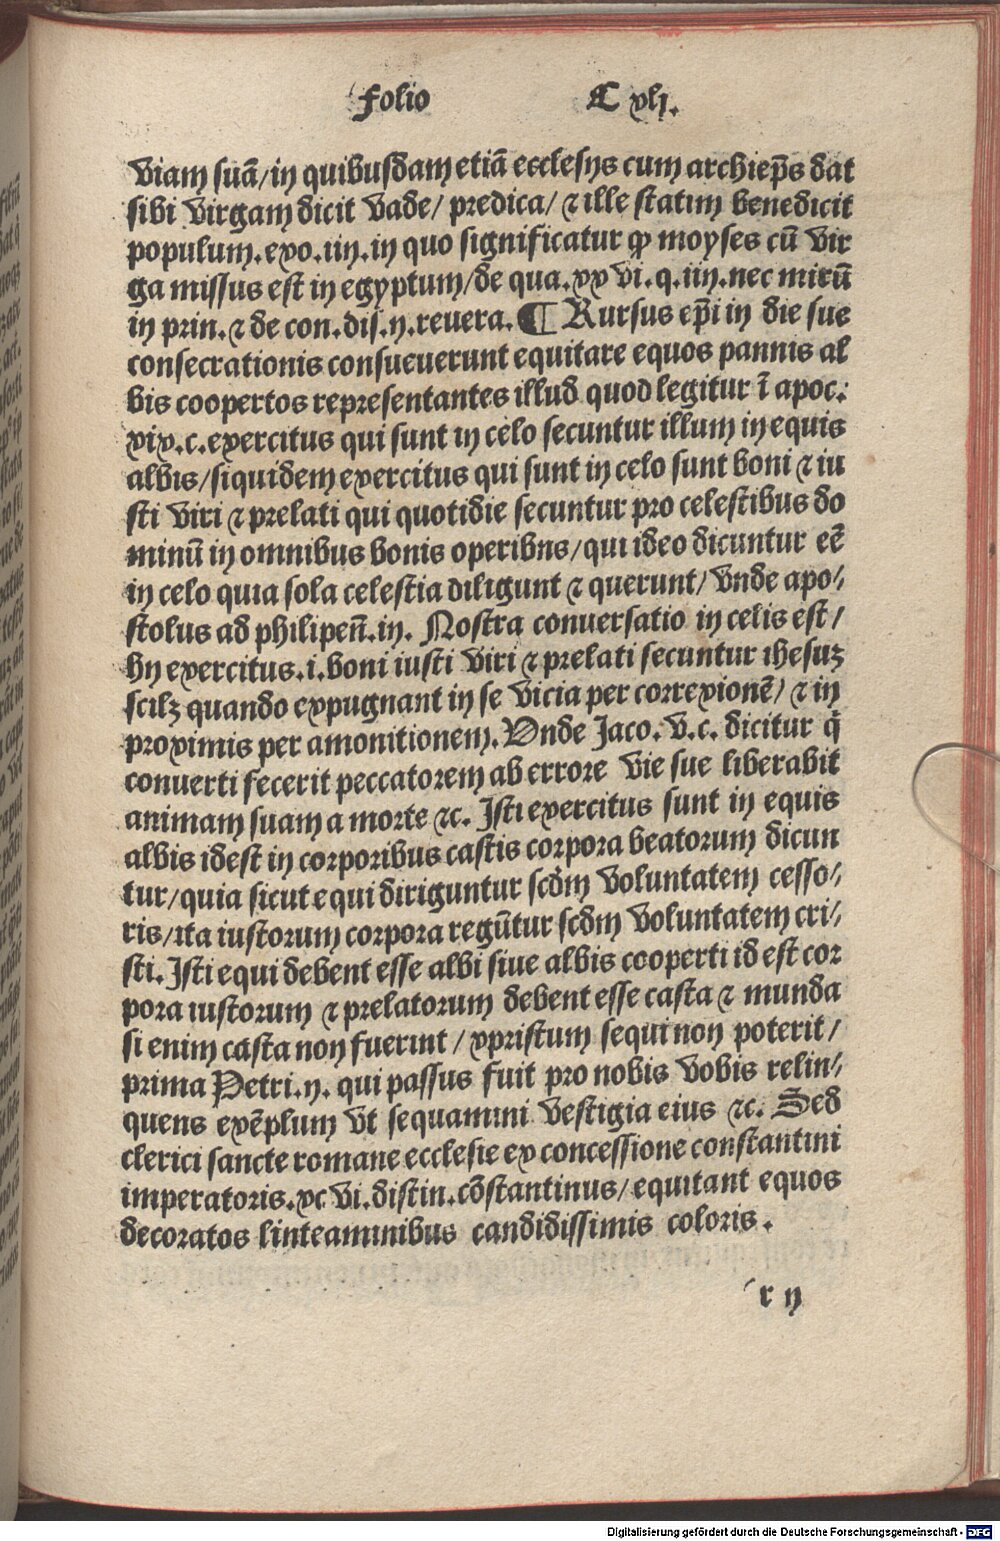 folio C xlj.
viam suã/in quibusdam etiã ecclesijs cum archiep̃s dat
sibi virgam dicit vade/ predica/ ⁊ ille statim benedicit
populum.exo.iiij.in quo significatur ꝙ moyses cũ vir
ga missus est in egyptum/de qua.xx vi.q.iiij.nec mirũ
in prin.⁊ de con.dis.ij.reuera.¶ Rursus ep̃i in die sue
consecrationis consueuerunt equitare equos pannis al
bis coopertos representantes illud quod legitur ĩ apoc.
xix.c.exercitus qui sunt in celo secuntur illum in equis
albis/siquidem exercitus qui sunt in celo sunt boni ⁊ iu
sti viri ⁊ prelati qui quotidie secuntur pro celestibus do
minũ in omnibus bonis operibns/qui ideo dicuntur eẽ
in celo quia sola celestia diligunt ⁊ querunt/ vnde apo⸗
stolus ad philipeñ.iij. Nostra conuersatio in celis est/
hij exercitus.i.boni iusti viri ⁊ prelati secuntur ihesuꝫ
scilꝫ quando expugnant in se vicia per correxionẽ/ ⁊ in
proximis per amonitionem. Vnde Jaco.v.c. dicitur q̇
conuerti fecerit peccatorem ab errore vie sue liberabit
animam suam a morte ⁊c. Isti exercitus sunt in equis
albis idest in corporibus castis corpora beatorum dicun
tur/quia sicut equi diriguntur scd̃m voluntatem cesso⸗
ris/ita iustorum corpora regũtur scd̃m voluntatem cri⸗
sti. Isti equi debent esse albi siue albis cooperti id est cor
pora iustorum ⁊ prelatorum debent esse casta ⁊ munda
si enim casta non fuerint / xpristum sequi non poterit/
prima Petri.ij. qui passus fuit pro nobis vobis relin⸗
quens exẽplum vt sequamini vestigia eius ⁊c. Sed
clerici sancte romane ecclesie ex concessione constantini
imperatoris.xc vi.distin.cõstantinus/equitant equos
decoratos linteaminibus candidissimis coloris.
r ij
Digitalisierung gefördert durch die Deutsche Forschungsgemeinschaft - DFG